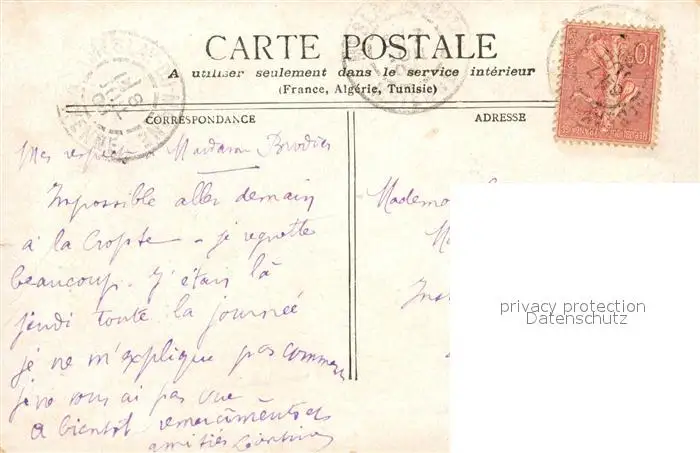 CARTE POSTALE
A utiliser seulement dans le service intérieur
(France, Algérie, Tunisie)
CORRESPONDANCE
ADRESSE
Mes Madame
Impossible aller demain
à la Cropte – je regrette
beaucoup. J'étais là
jeudi toute la journée
je ne m'explique pas comment
je ne vous ai pas vue
A bientôt remerciments et
amitiés
Mademo
10
privacy protection
Datenschutz